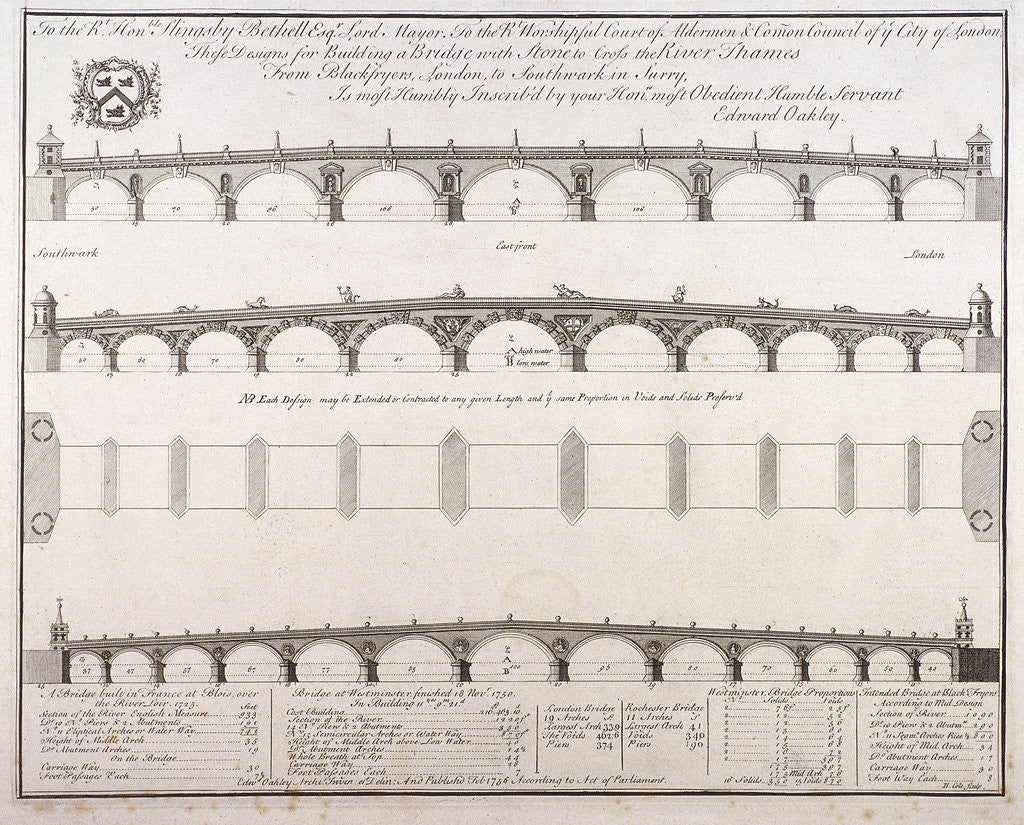 To the Rt. Honble Slingsby Bethell Esqr. Lord Mayor. To the Rt Worshipful Court of Aldermen & Com̃on Council of ye City of London;
These Designs for Building a Bridge with Stone to Cross the River Thames
From Blackfryers, London, to Southwark in Surry,
Is most Humbly Inscrib'd by your Honrs. most Obedient Humble Servant
Edward Oakley.
50 70 86 106 A B 106
15 20 26
Southwark East front London
50 60 70 80 80 A high water B low water
13 18 19 22 25
NB Each Design may be Extended or Contracted to any given Length and ye same Proportion in Voids and Solids Preserv'd
37 47 57 67 77 85 A B 100 95 80 70 60 50 40
A Bridge built in France at Blois, over
the River Loir, 1725. Feet
Section of the River English Measure 933
Do. 10 No. Piers & 2 Abutments 191
No. 11 Eliptical Arches or Water Way 742
Height of Middle Arch 35
Do. Abutment Arches 19
On the Bridge
Carriage Way 30
Foot Passages Each 7½
Bridge at Westminster, finished 18 Novr. 1750.
In Building 11 yrs. 9m. 21ds.
Cost Building
Section of the River 1220 f
No. 14 Piers & 2 Abutments
No. 15 Semicircular Arches or Water Way 870 f
Height of Middle Arch above Low Water 40
Do. Abutment Arches
Whole Breath at Top 44
Carriage Way
Foot Passages Each
London Bridge
19 Arches F.
Largest Arch
The Voids
Piers 374
Rochester Bridge
11 Arches F
Largest Arch 41
Voids 340
Piers 190
Westminster, Bridge Proportions
No. Solids Voids
Mid Arh 76
16 Solids 350 15 Voids 870
Intended Bridge at Black Fryers
According to Mid. Design
Section of River 1000
Do. 10 Piers & 2 Abutmts. 200
No. 11 Segmt. Arches Rise ⅓ 800
Height of Mid. Arch 34
Do. Abutment Arches 17
Carriage Way 30
Foot Way Each 8
Edwd. Oakley Archt. Inven. et Delin: And Publish'd Feb 1756 According to Act of Parliament.
B. Cole Sculp.